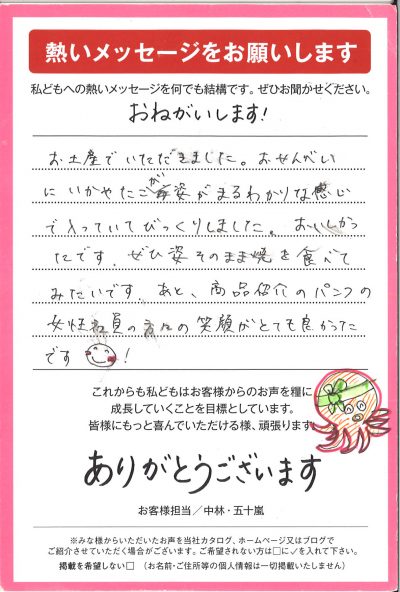 熱いメッセージをお願いします
私どもへの熱いメッセージを何でも結構です。ぜひお聞かせください。
おねがいします!
お土産でいただきました。おせんべい
にいかやたこが姿がまるわかりな感じ
で入っていてびっくりしました。おいしかっ
たです。ぜひ姿そのまま焼を食べて
みたいです。あと、商品紹介のパンフの
女性社員の方々の笑顔がとても良かった
です!
これからも私どもはお客様からのお声を糧に
成長していくことを目標としています。
皆様にもっと喜んでいただける様、頑張ります!
ありがとうございます
お客様担当/中林・五十嵐
※みな様からいただいたお声を当社カタログ、ホームページ又はブログで
ご紹介させていただく場合がございます。ご希望されない方は□に✓を入れて下さい。
掲載を希望しない□ (お名前・ご住所等の個人情報は一切掲載いたしません)